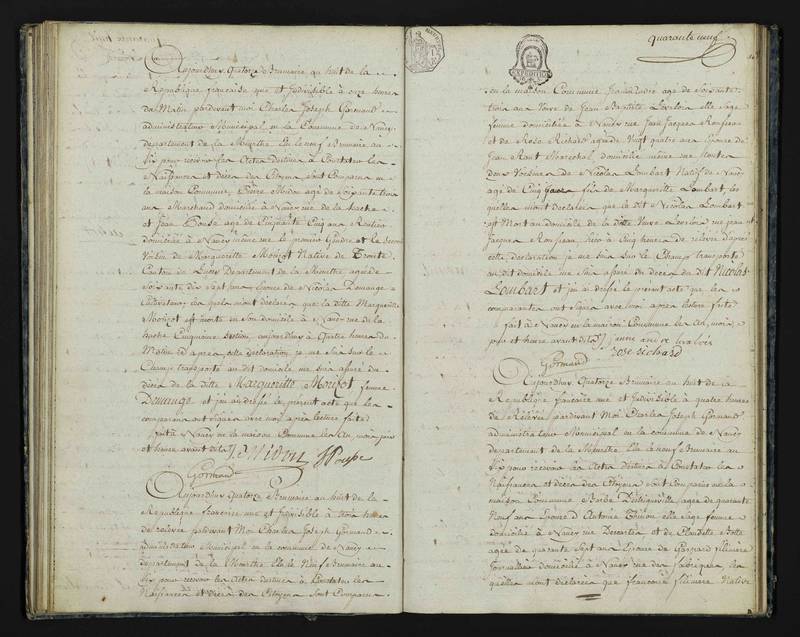 Aujourdhuy Quatorze Brumaire an huit de la
Republique francaise une et Indivisible à onze heures
Du Matin pardevant moi Charles Joseph Gormand
administrateur Municipal en la Commune de Nancy
departement de la Meurthe Elu le neuf Brumaire an
Six pour recevoir les Actes destinés à Constater les
Naissances et décès des Citoyens sont Comparus en
la maison Commune, Pierre Midon agé de Soixante trois
ans Marchand domicilié à Nancy rue de la hache
et Jean agé de Cinquante Cinq ans Rentier
domicilié à Nancy même rue le premier Gendre et le second
Voisin de Marguerite Monzot Native de
Canton de Departement de la Meurthe agée de
Soixante dix Sept ans Epouse de Nicolas Domange
Cultivateur, les quels m'ont déclaré que la ditte Marguerite
Monzot est morte en son domicile à Nancy rue de la
hache Cinquieme Section, aujourdhuy à Quatre heures du
Matin et après cette déclaration je me suis sur le
Champ transporté au dit domicile me suis assuré du
décès de la ditte Marguerite Monzot femme
Domange et j'ai dressé le présent acte que les
comparans ont signés avec moi après lecture faite
fait à Nancy en la maison Commune les An, mois, jour
et heure avant dits
Midon
Gormand
Aujourdhuy Quatorze Brumaire an huit de la
Republique francaise une et Indivisible à trois heures
de relevée pardevant Moi Charles Joseph Gormand
administrateur Municipal en la commune de Nancy
Departement de la Meurthe Elu le Neuf Brumaire an
Six pour recevoir les Actes destinés à Constater les
Naissances et décès des Citoyens sont Comparus
quarante neuf
EXPEDITION
en la maison Commune agé de Soixante
trois ans Veuve de Jean Baptiste Levoloix elle Sage
femme domiciliée à Nancy rue Jean Jacques Rousseau
et de Rose Richard agée de Vingt quatre ans Epouse de
Jean Marechal, domiciliée même rue toutes
deux Voisines de Nicolas Lombart Natif de Nancy
agé de Cinq jours fils de Marguerite Lombart, les
quelles m'ont Declarées que le dit Nicolas Lombart
est Mort au domicile de la ditte Veuve Levoloix rue jean
Jacques Rousseau, hier à Cinq heures de relevée d'après
cette déclaration je me suis sur le Champ transporté
au dit domicile me suis assuré du décès du dit Nicolas
Lombart et j'ai dressé le présent acte que les
comparantes ont signés avec moi après lecture faite
fait à Nancy en la maison Commune les An, mois
jour et heure avant dits
rose richard
Gormand
Aujourdhuy Quatorze Brumaire an huit de la
Republique francaise une et Indivisible à quatre heures
de Relevée pardevant Moi Charles Joseph Gormand
administrateur Municipal en la commune de Nancy
departement de la Meurthe Elu le neuf Brumaire an
Six pour recevoir les Actes destinés à Constater les
Naissances et décès des Citoyens sont Comparues en la
maison Commune Barbe agée de quarante
Neuf ans Epouse d'Antoine Thirion elle Sage femme
domiciliée à Nancy rue Descartes et de Claudette
agée de quarante Sept ans Epouse de Gaspard
Journalière domiciliée à Nancy rue des fabriques les
quelles m'ont déclarées que francoise Native